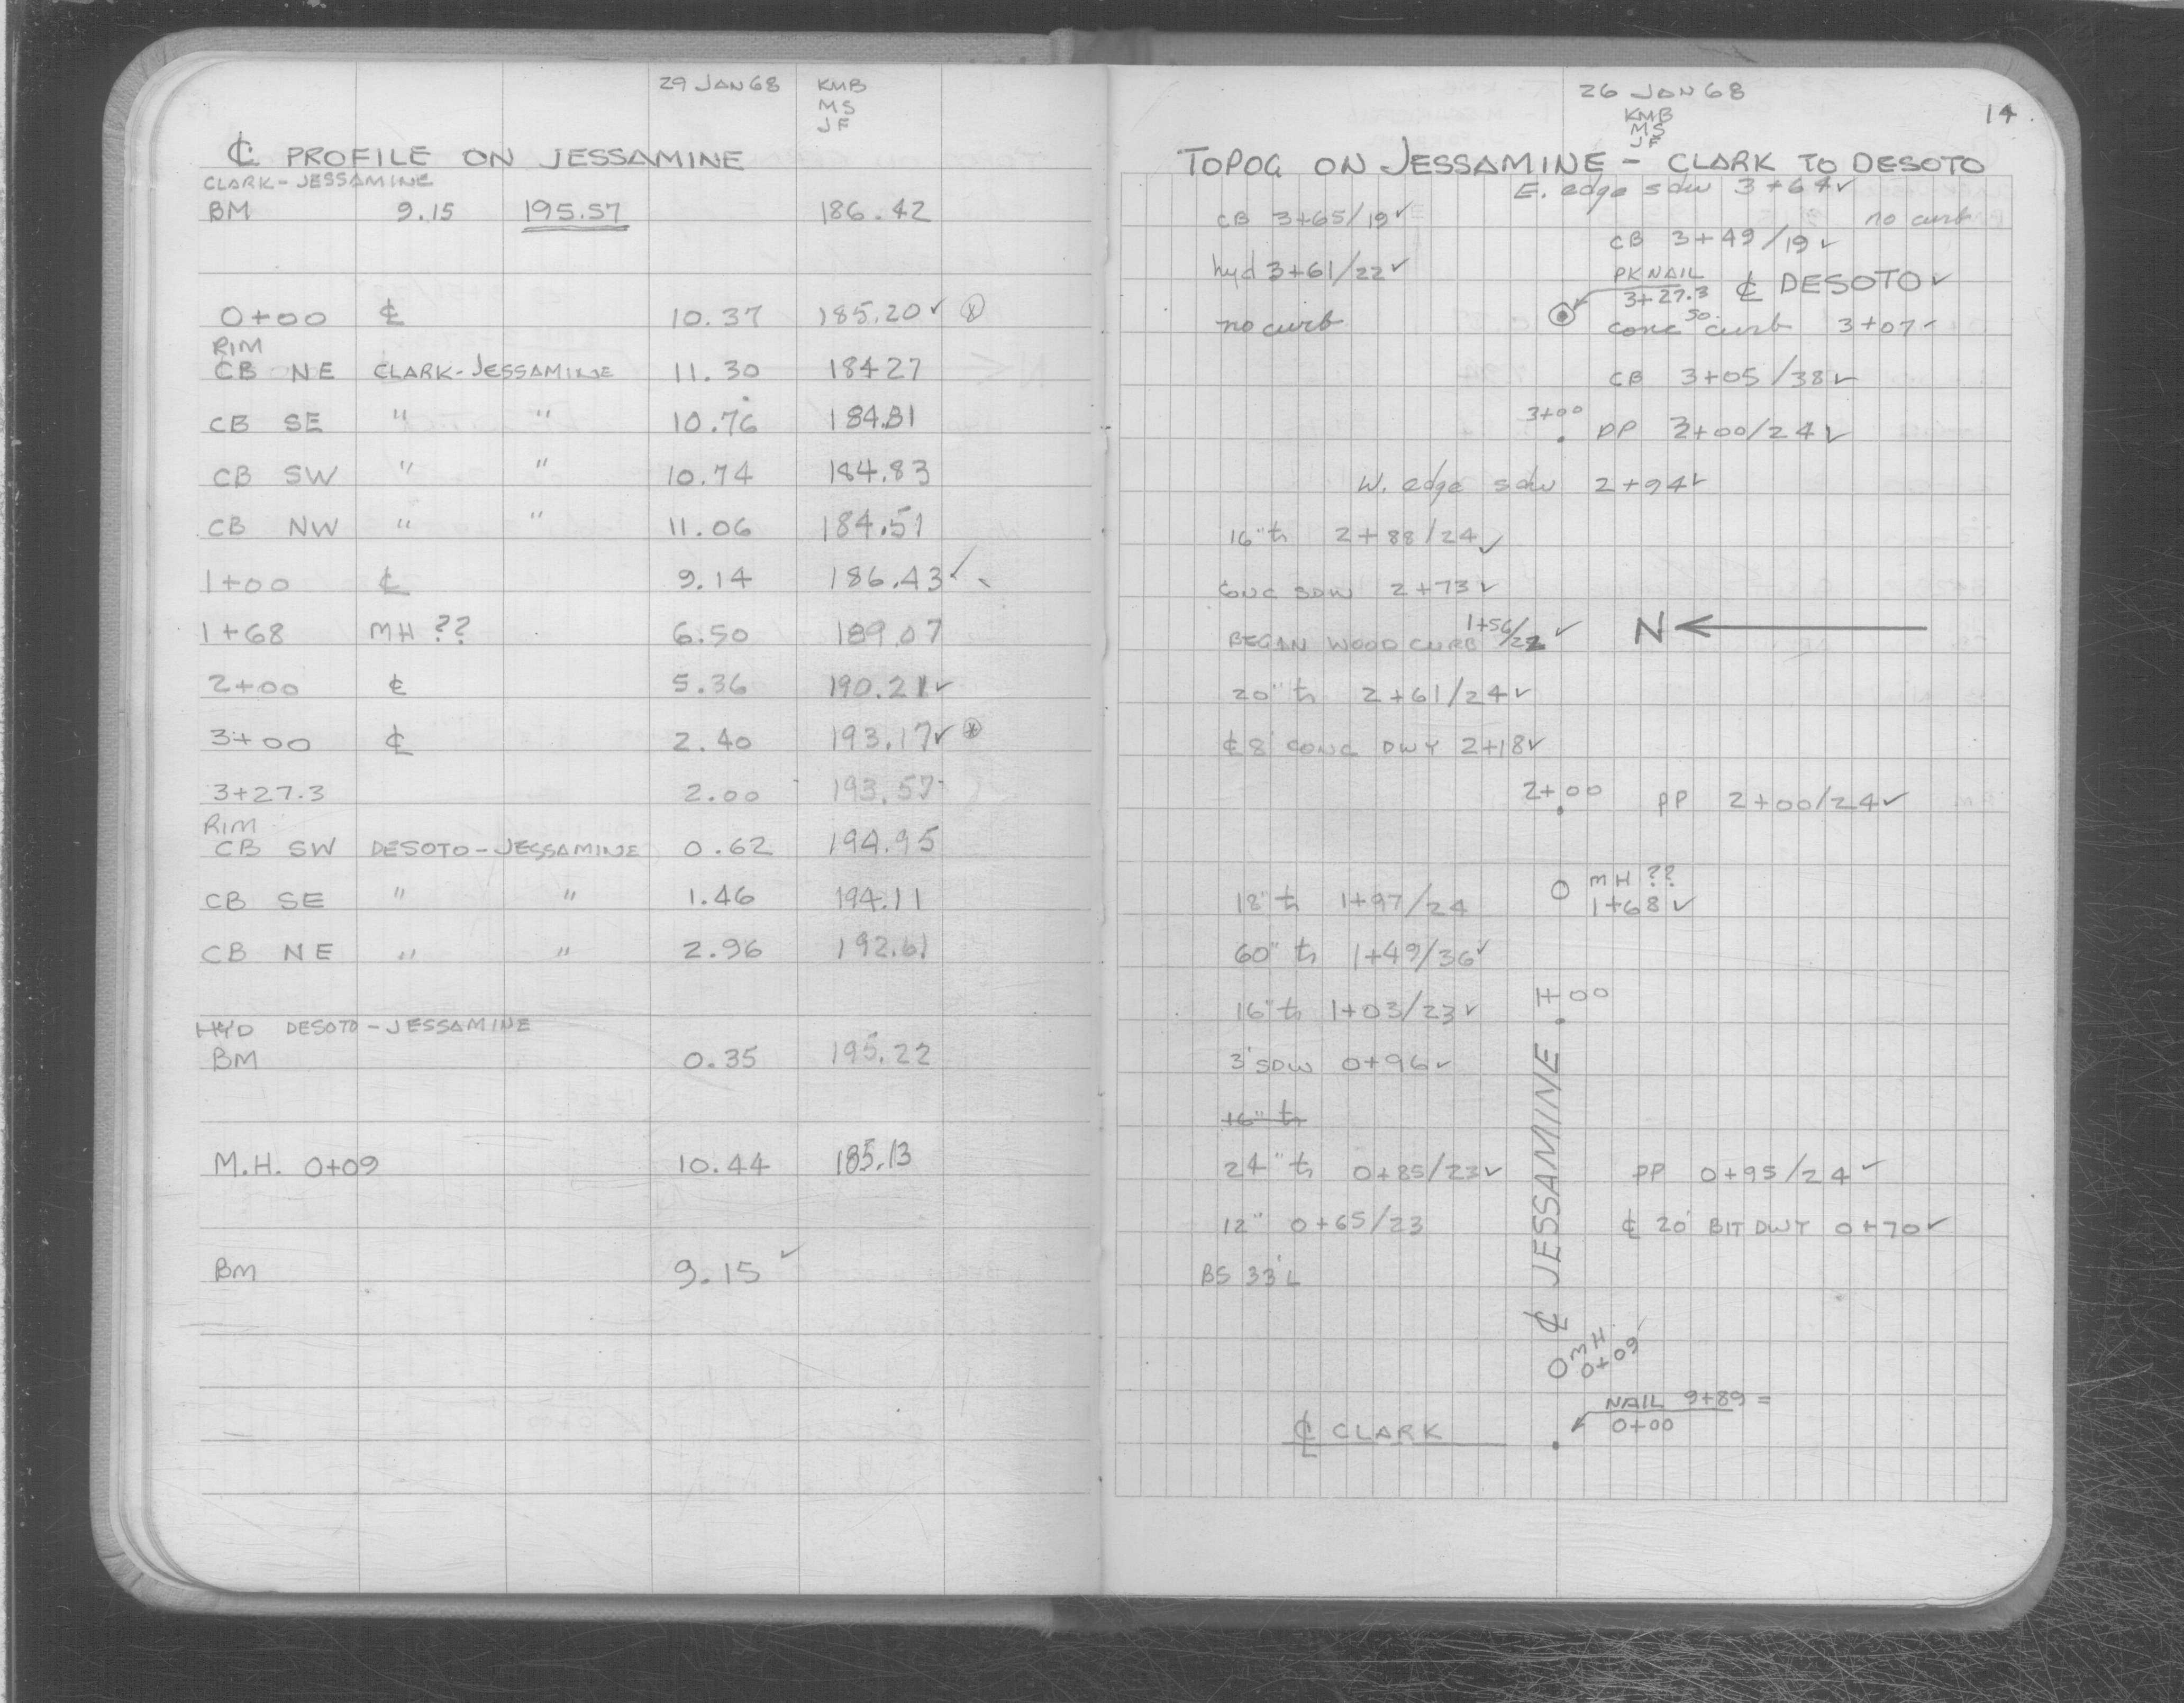 29 JAN 68 KMB
MS
JF
℄ PROFILE ON JESSAMINE
CLARK-JESSAMINE
BM 9.15 195.57 186.42
0+00 ℄ 10.37 185.20 ✓ ⊗
RIM
CB NE CLARK-JESSAMINE 11.30 184 27
CB SE " " 10.76 184.81
CB SW " " 10.74 184.83
CB NW " " 11.06 184.51
1+00 ℄ 9.14 186.43 ✓
1+68 MH ?? 6.50 189.07
2+00 ℄ 5.36 190.21 ✓
3+00 ℄ 2.40 193.17 ✓ ⊗
3+27.3 2.00 193.57
RIM
CB SW DESOTO-JESSAMINE 0.62 194.95
CB SE " " 1.46 194.11
CB NE " " 2.96 192.61
HYD DESOTO-JESSAMINE
BM 0.35 195.22
M.H. 0+09 10.44 185.13
BM 9.15 ✓
26 JAN 68
KMB
MS
JF
14
TOPOG ON JESSAMINE - CLARK TO DESOTO
E. edge sdw 3+64 ✓
CB 3+65/19 ✓ no curb
CB 3+49/19 ✓
hyd 3+61/22 ✓ PK NAIL
3+27.3 ℄ DESOTO ✓
no curb conc so. curb 3+07 ✓
CB 3+05/38 ✓
3+00 PP 3+00/24 ✓
W. edge sdw 2+94 ✓
16" tr 2+88/24 ✓
CONC SDW 2+73 ✓
BEGAN WOOD CURB 1+56/22 ✓ N
20" tr 2+61/24 ✓
℄ 8' CONC DWY 2+18 ✓
2+00 PP 2+00/24 ✓
MH ??
18" tr 1+97/24 1+68 ✓
60" tr 1+49/36 ✓
1+00
16" tr 1+03/23 ✓
3' SDW 0+96 ✓
16" tr
24" tr 0+85/23 ✓ PP 0+95/24 ✓
12" 0+65/23 ℄ 20' BIT DWY 0+70 ✓
BS 33' L
℄ JESSAMINE
MH
0+09
NAIL 9+89 =
0+00
℄ CLARK